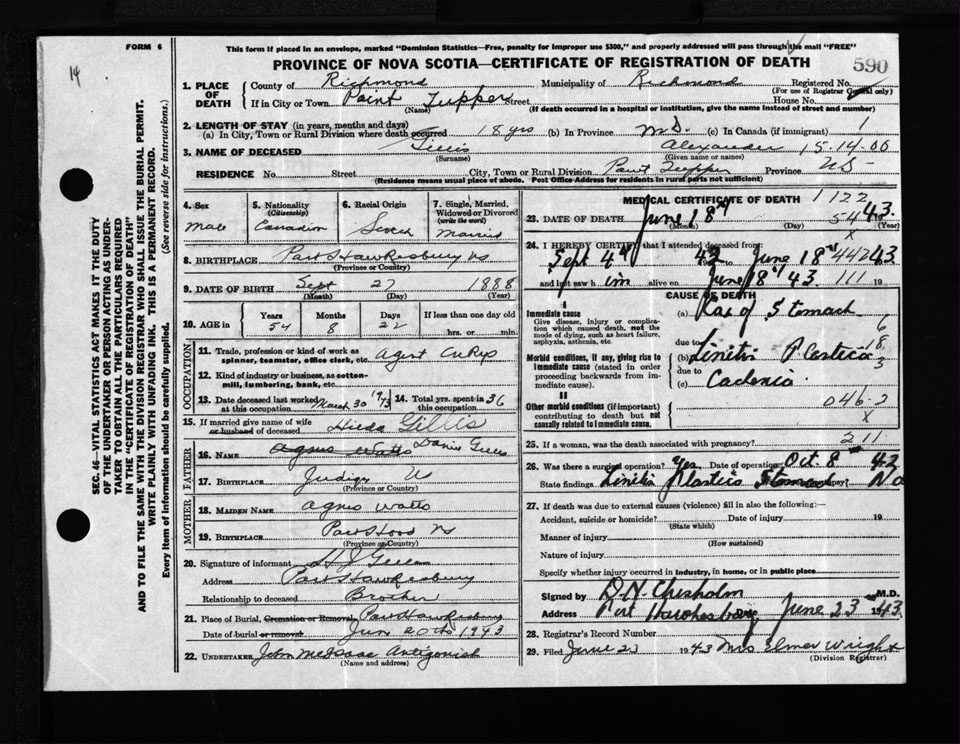 FORM 6
14
This form if placed in an envelope, marked "Dominion Statistics—Free, penalty for improper use $300," and properly addressed will pass through the mail "FREE"
PROVINCE OF NOVA SCOTIA—CERTIFICATE OF REGISTRATION OF DEATH
590
SEC. 46—VITAL STATISTICS ACT MAKES IT THE DUTY
OF THE UNDERTAKER OR PERSON ACTING AS UNDER-
TAKER TO OBTAIN ALL THE PARTICULARS REQUIRED
IN THE "CERTIFICATE OF REGISTRATION OF DEATH"
AND TO FILE THE SAME WITH THE DIVISION REGISTRAR WHO SHALL ISSUE THE BURIAL PERMIT.
WRITE PLAINLY WITH UNFADING INK. THIS IS A PERMANENT RECORD.
Every item of Information should be carefully supplied. (See reverse side for instructions.)
1. PLACE OF DEATH County of Richmond Municipality of Richmond Registered No.
(For use of Registrar General only)
If in City or Town Point Tupper Street House No.
(Name) (If death occurred in a hospital or institution, give the name instead of street and number)
2. LENGTH OF STAY (in years, months and days)
(a) In City, Town or Rural Division where death occurred 18 yrs (b) In Province (c) In Canada (if immigrant) 1
3. NAME OF DECEASED Gillis Alexander 15-14-00
(Surname) (Given name or names)
RESIDENCE No. Street City, Town or Rural Division Point Tupper Province NS
(Residence means usual place of abode. Post Office Address for residents in rural parts not sufficient)
4. Sex Male
5. Nationality (Citizenship) Canadian
6. Racial Origin Scotch
7. Single, Married, Widowed or Divorced (write the word) Married
8. BIRTHPLACE Port Hawkesbury NS
(Province or Country)
9. DATE OF BIRTH Sept 27 1888
(Month) (Day) (Year)
10. AGE in Years 54 Months 8 Days 22 If less than one day old hrs. or min.
OCCUPATION
11. Trade, profession or kind of work as spinner, teamster, office clerk, etc. Agent Cn Rys
12. Kind of industry or business, as cotton-mill, lumbering, bank, etc.
13. Date deceased last worked at this occupation March 30 1943 14. Total yrs. spent in this occupation 36
15. If married give name of wife or husband of deceased Hilda Gillis
FATHER
16. NAME Agnes Watts Daniel Gillis
17. BIRTHPLACE Judique NS
(Province or Country)
MOTHER
18. MAIDEN NAME Agnes Watts
19. BIRTHPLACE Port Hood NS
(Province or Country)
20. Signature of informant H J Gillis
Address Port Hawkesbury
Relationship to deceased Brother
21. Place of Burial, Cremation or Removal Port Hawkesbury
Date of burial or removal June 20th 1943
22. UNDERTAKER John McIsaac Antigonish
(Name and address)
MEDICAL CERTIFICATE OF DEATH 1122
23. DATE OF DEATH June 18th 54 43
(Month) (Day) (Year)
x
24. I HEREBY CERTIFY that I attended deceased from:
Sept 4th 1942 to June 18th 442 43
and last saw him alive on June 18th 43. 111 19
CAUSE OF DEATH
I
Immediate cause
Give disease, injury or complication which caused death, not the mode of dying, such as heart failure, asphyxia, asthenia, etc.
(a) Ca of Stomach
6
due to
18
Morbid conditions, if any, giving rise to immediate cause (stated in order proceeding backwards from immediate cause).
(b) Linitis Plastica
3
due to
(c)
II
Other morbid conditions (if important) contributing to death but not causally related to immediate cause.
046-2
x
25. If a woman, was the death associated with pregnancy? 211
26. Was there a surgical operation? Yes Date of operation Oct. 8 1942
State findings Linitis Plastica Stomach No
27. If death was due to external causes (violence) fill in also the following:—
Accident, suicide or homicide? Date of injury 19
(State which)
Manner of injury
(How sustained)
Nature of injury
Specify whether injury occurred in industry, in home, or in public place
Signed by D. N. Chisholm M.D.
Address Port Hawkesbury Date June 23 1943
28. Registrar's Record Number
29. Filed June 23 1943 Mrs Elmer Wright
(Division Registrar)